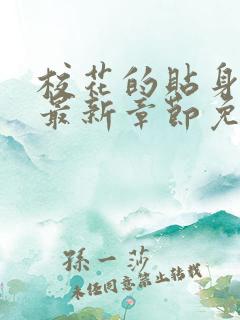 校花的贴身
最新章节免
孫一莎
未经同意禁止转载